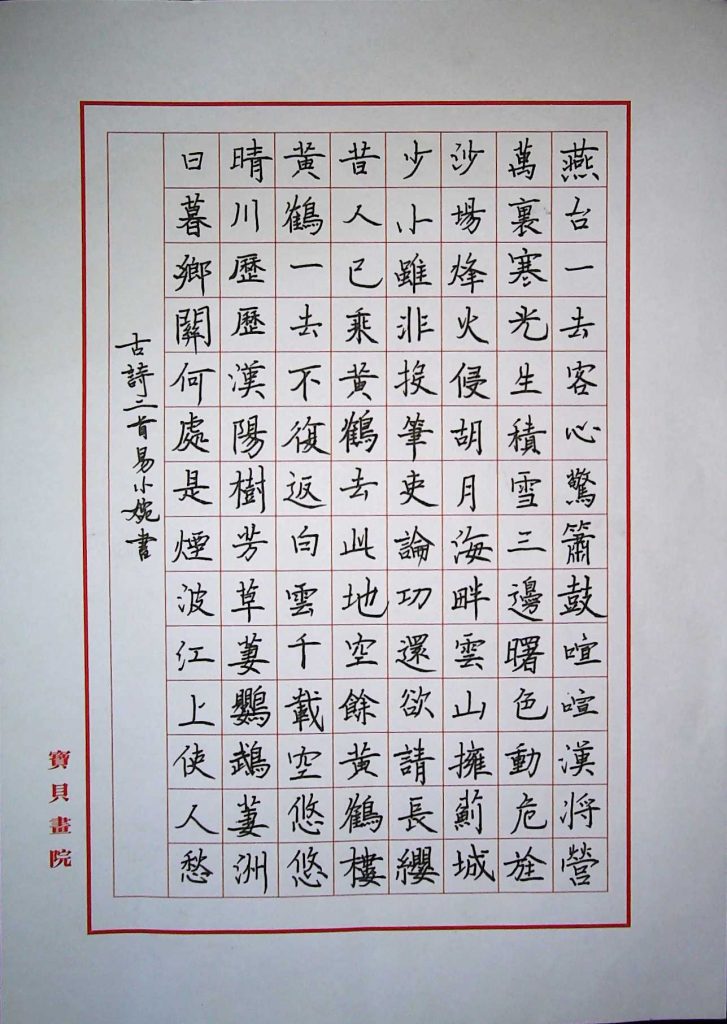 燕台一去客心驚簫鼓喧喧漢将營
萬裏寒光生積雪三邊曙色動危旌
沙場烽火侵胡月海畔雲山擁薊城
少小雖非投筆吏論功還欲請長纓
昔人已乘黄鶴去此地空餘黄鶴樓
黄鶴一去不復返白雲千載空悠悠
晴川歷歷漢陽樹芳草萋鸚鵡萋洲
日暮鄉關何處是煙波江上使人愁
古詩二首易小婉書
寶貝畫院